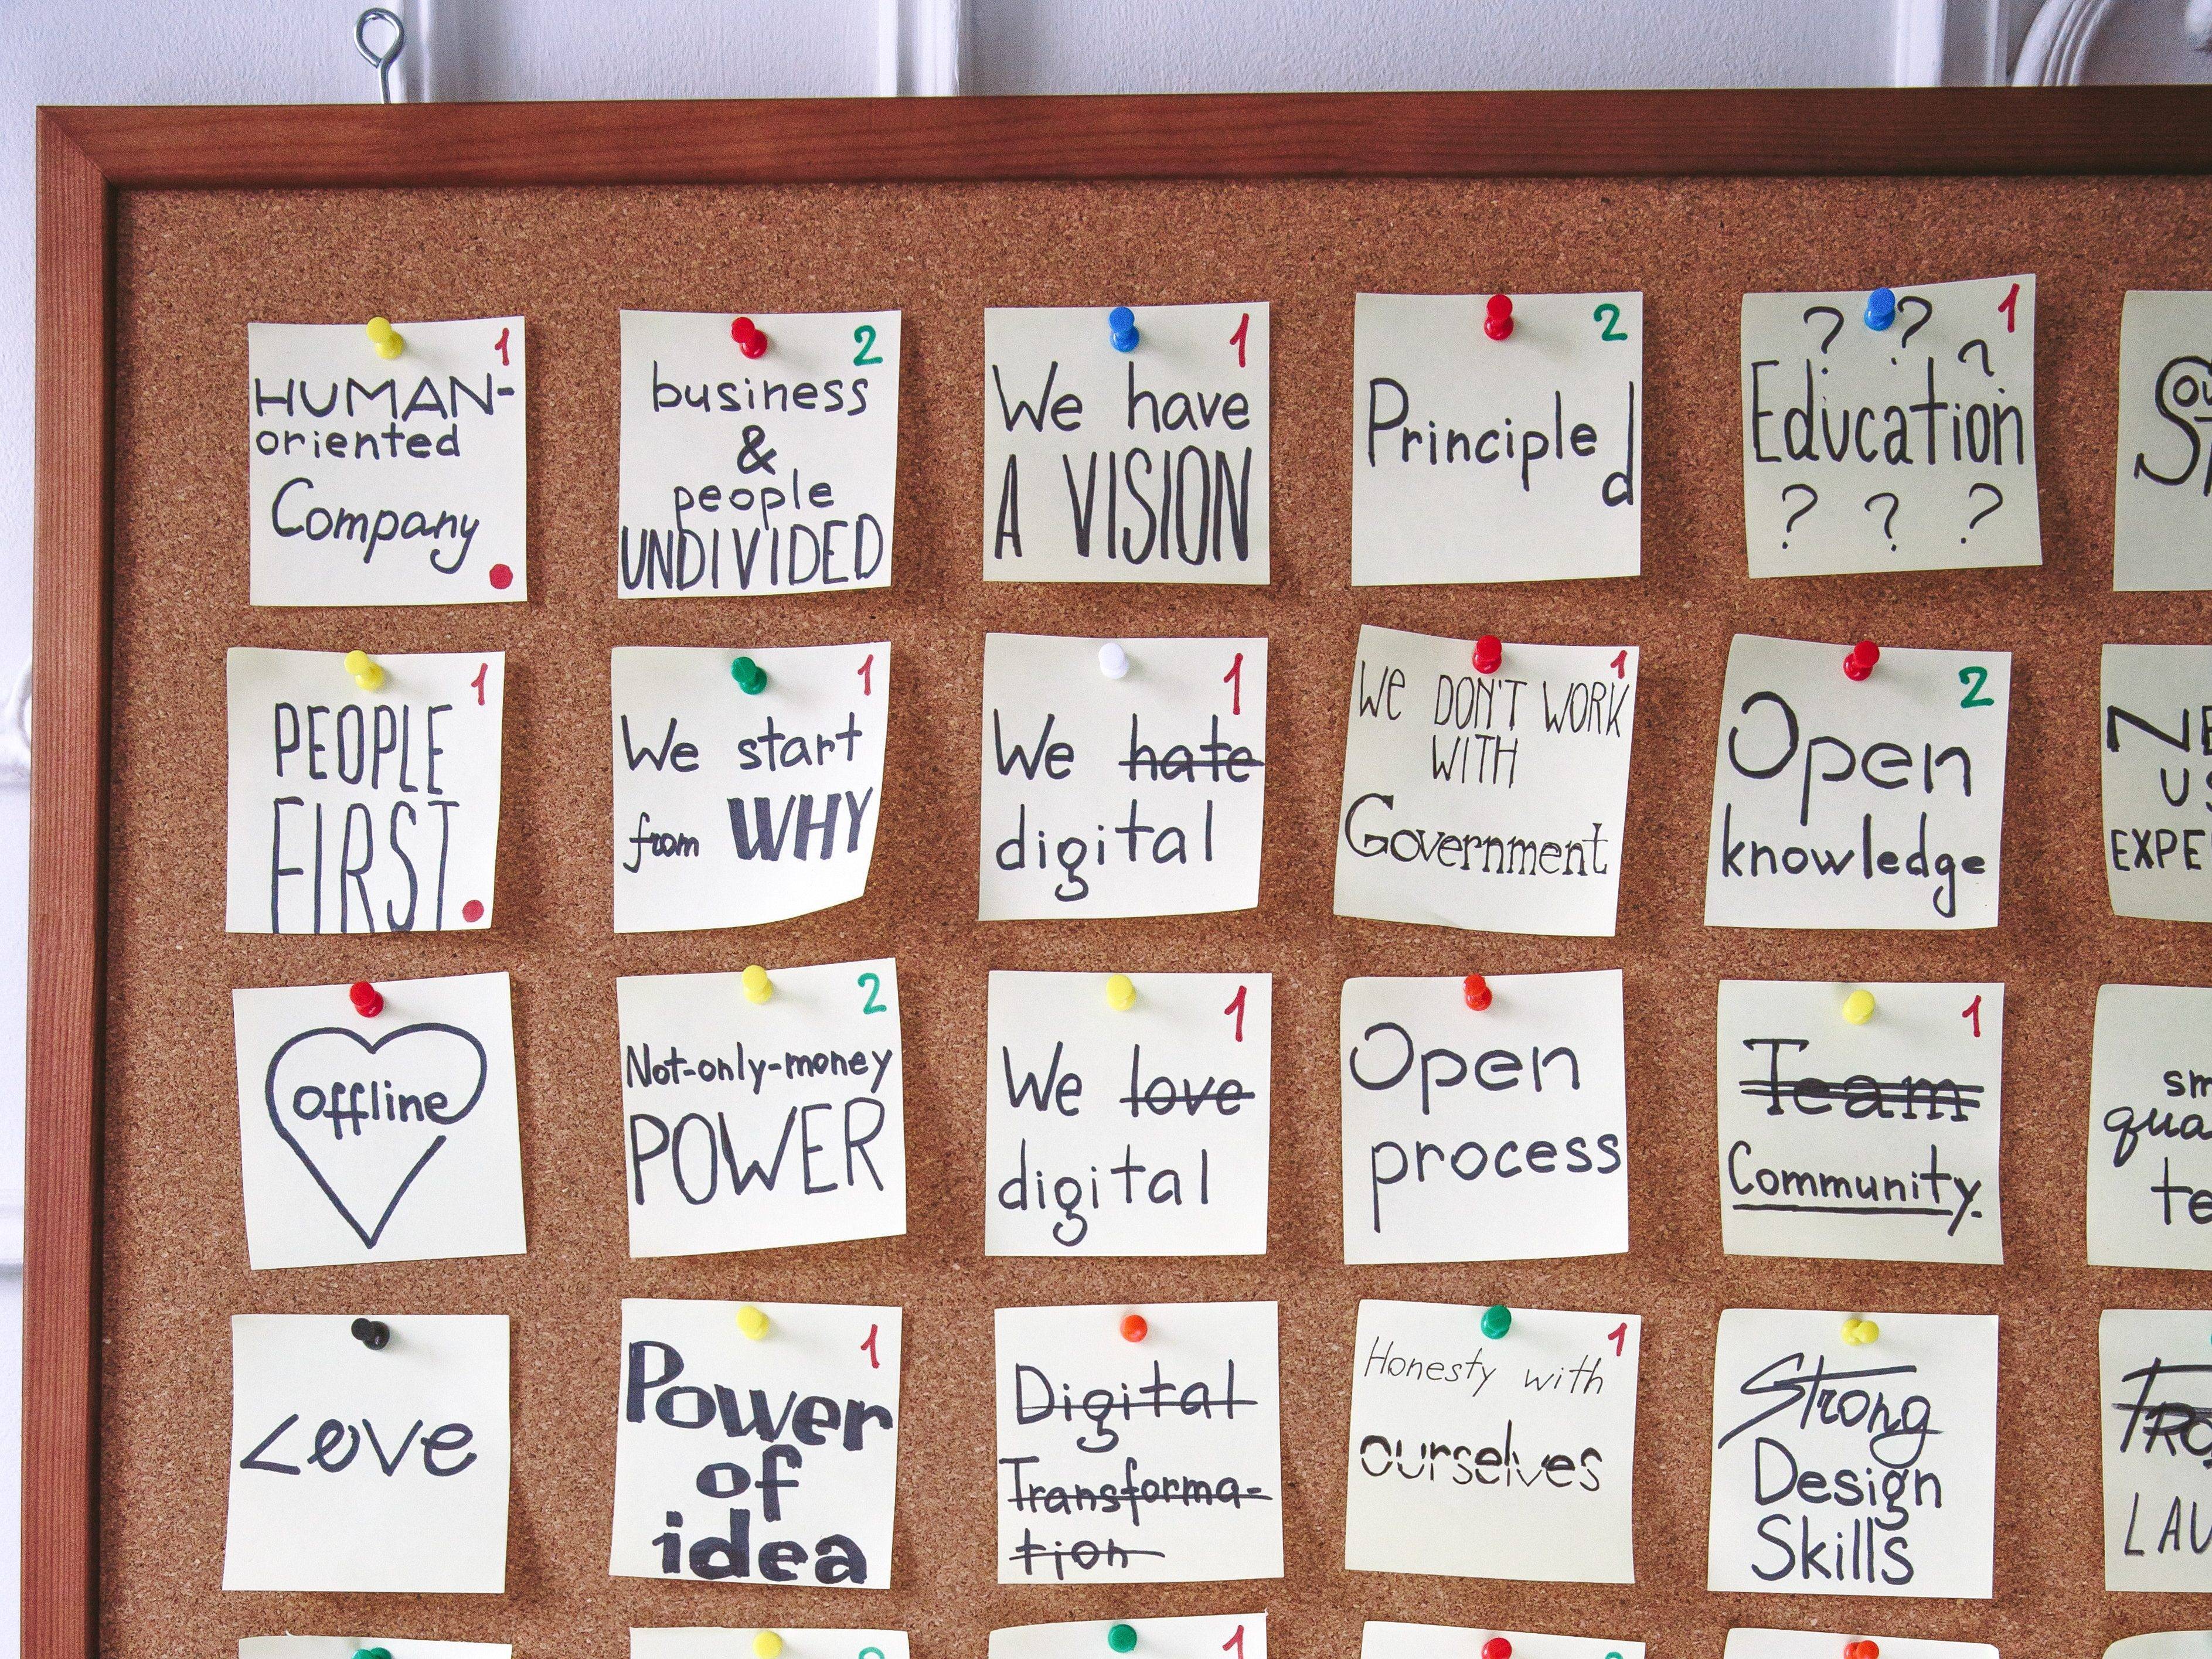 1
HUMAN-
oriented
Company
2
business
&
people
UNDIVIDED
1
We have
A VISION
2
Principled
1
? ? ?
Education
? ? ?
1
PEOPLE
FIRST
1
We start
from WHY
1
We hate
digital
1
We DON'T WORK
WITH
Government
2
Open
knowledge
offline
2
Not-only-money
POWER
1
We love
digital
Open
process
1
Team
Community.
Love
1
Power
of
idea
Digital
Transforma-
tion
1
Honesty with
ourselves
Strong
Design
Skills
1